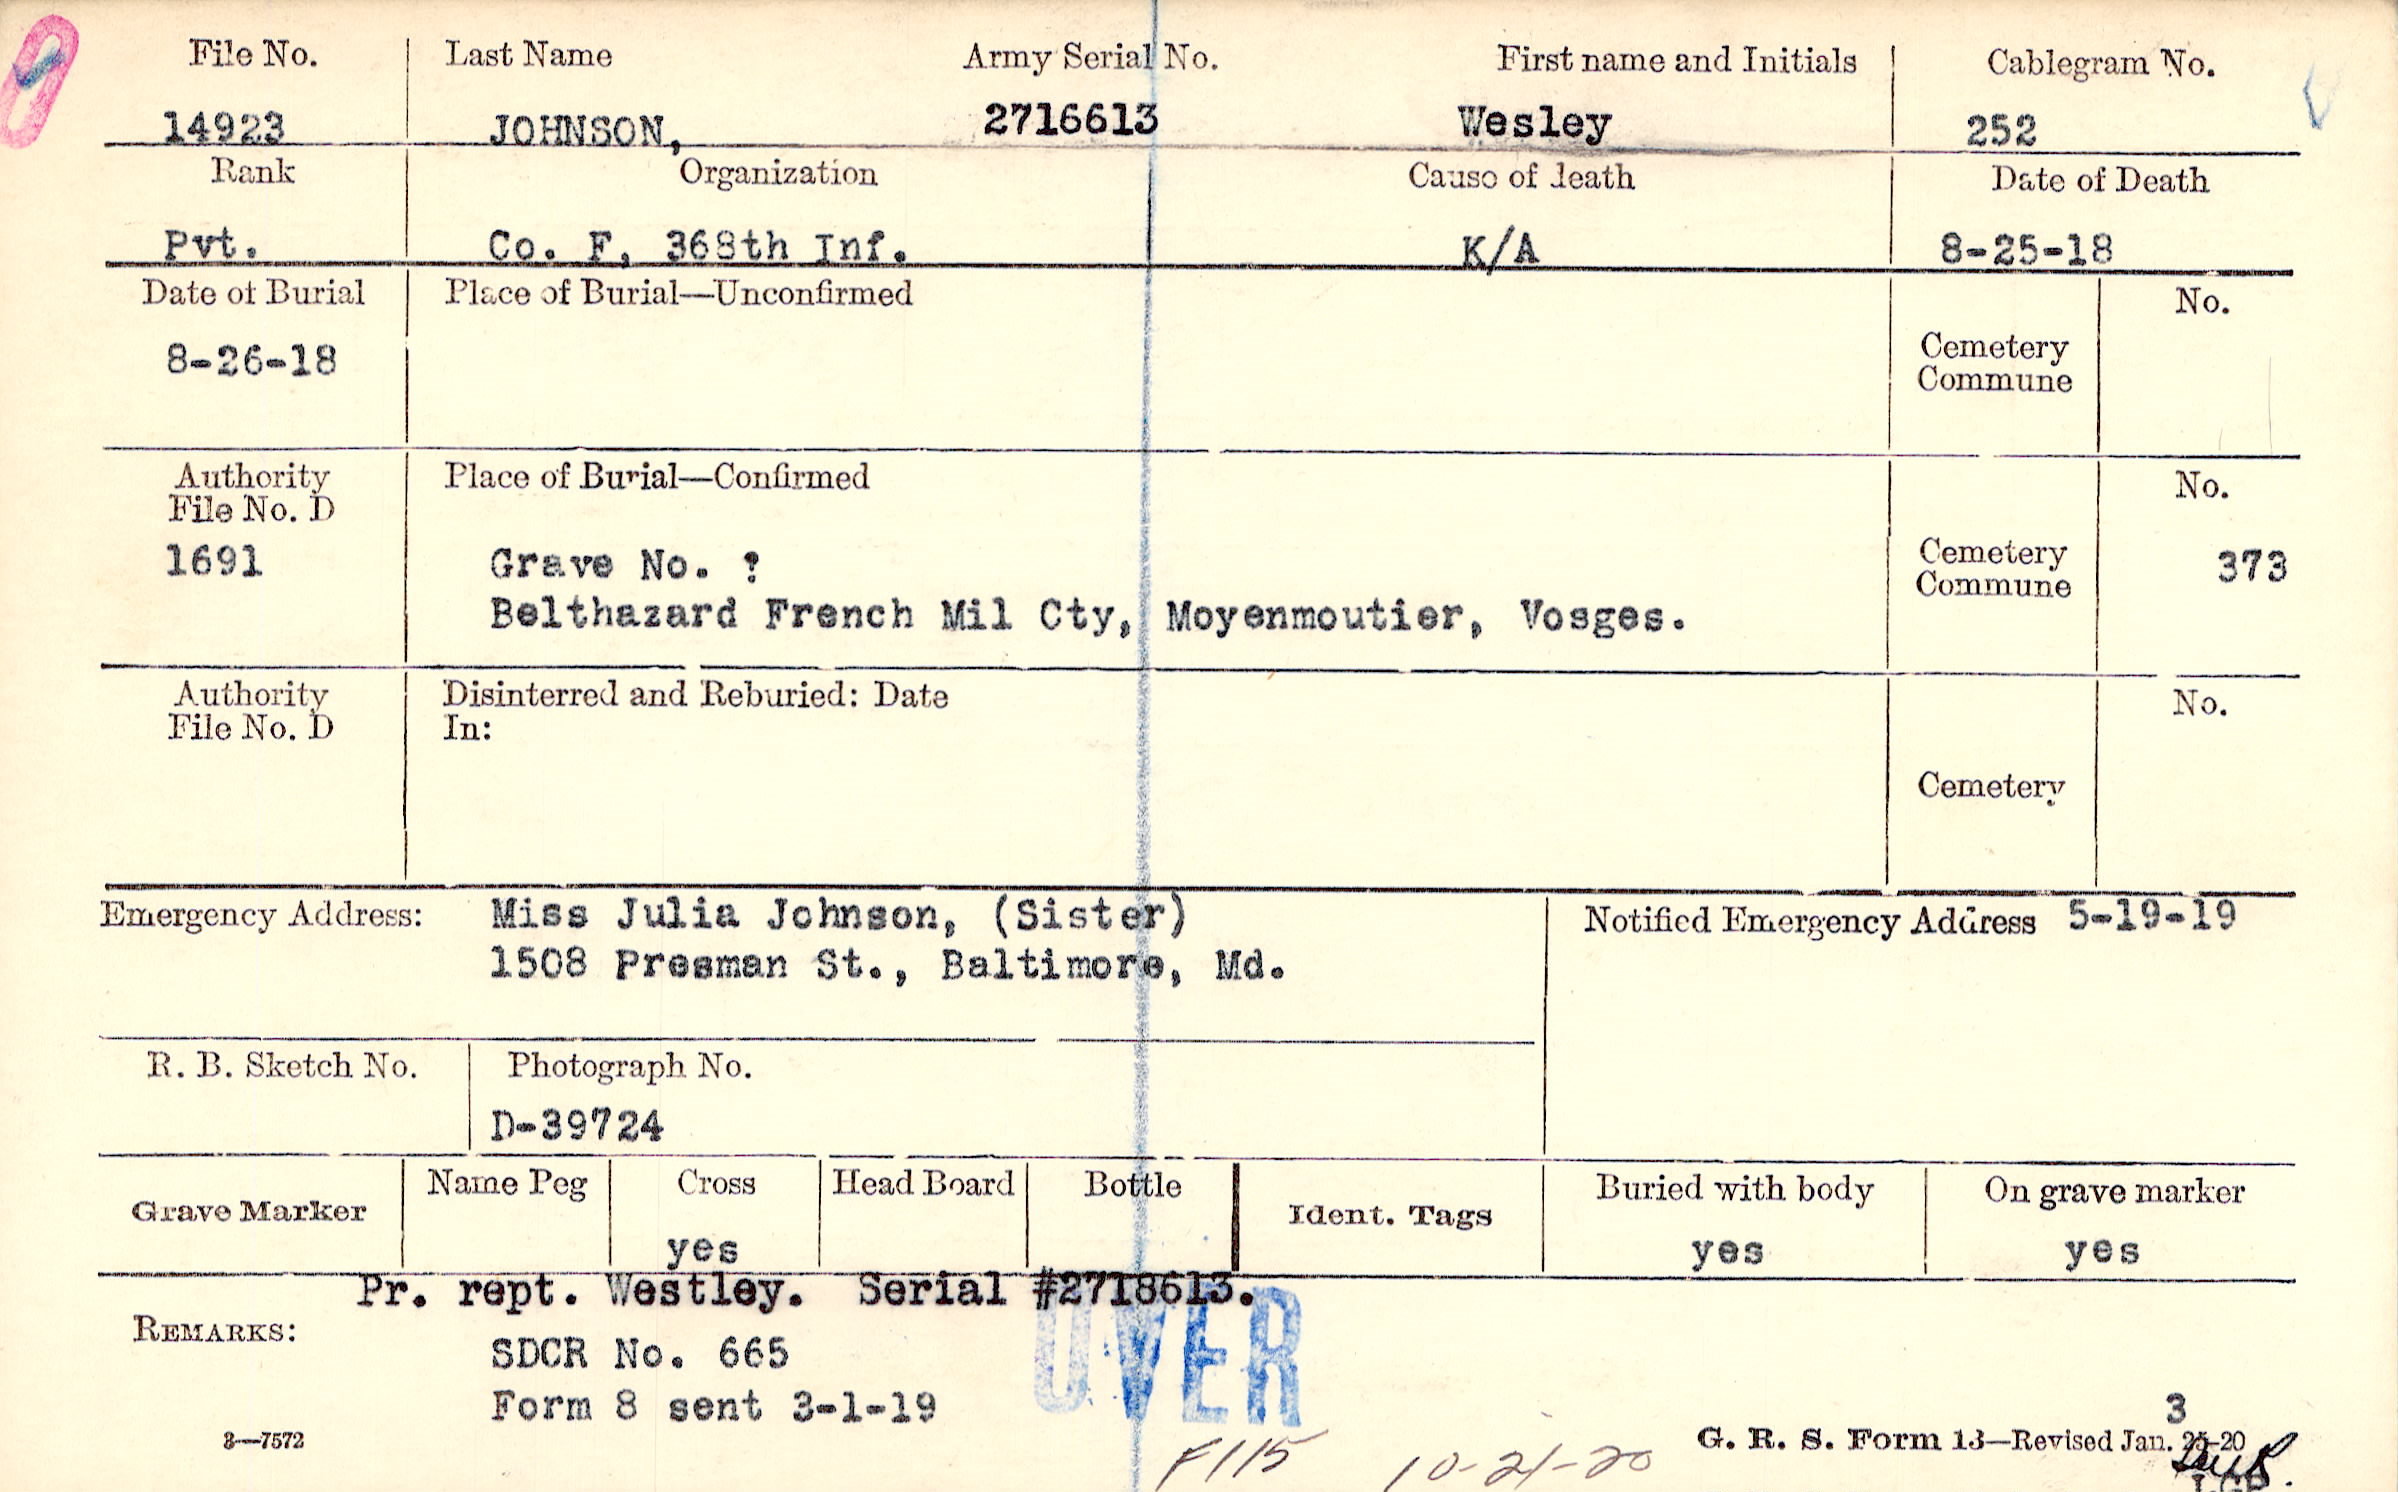 File No. Last Name Army Serial No. First name and Initials Cablegram No.
14923 JOHNSON, 2716613 Wesley 252
Rank Organization Cause of death Date of Death
Pvt. Co. F, 368th Inf. K/A 8-25-18
Date of Burial Place of Burial—Unconfirmed No.
8-26-18 Cemetery
Commune
Authority Place of Burial—Confirmed No.
File No. D
1691 Grave No. ? Cemetery 373
Commune
Belthazard French Mil Cty, Moyenmoutier, Vosges.
Authority Disinterred and Reburied: Date No.
File No. D In:
Cemetery
Emergency Address: Miss Julia Johnson, (Sister) Notified Emergency Address 5-19-19
1508 Presman St., Baltimore, Md.
R. B. Sketch No. Photograph No.
D-39724
Grave Marker Name Peg Cross Head Board Bottle Ident. Tags Buried with body On grave marker
yes yes yes
Pr. rept. Westley. Serial #2718613.
REMARKS: OVER
SDCR No. 665
Form 8 sent 3-1-19 3
3—7572 F115 10-21-20 G. R. S. Form 13—Revised Jan. 25-20